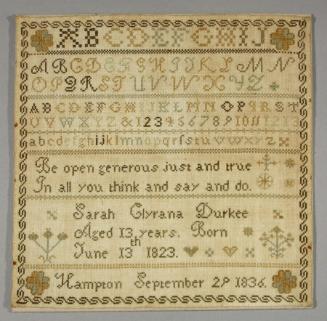 ABCDEFGHIJ
ABCDEFGHIJKLMN
OPQRSTUVWXYZ
ABCDEFGHIJKLMNOPQRST
UVWXYZ&1234567891011121
abcdefghijklmnopqrſstuvwxyz
Be open generous just and true
In all you think and say and do.
Sarah Clyrana Durkee
Aged 13 years. Born
June 13th 1823.
Hampton September 29 1836.